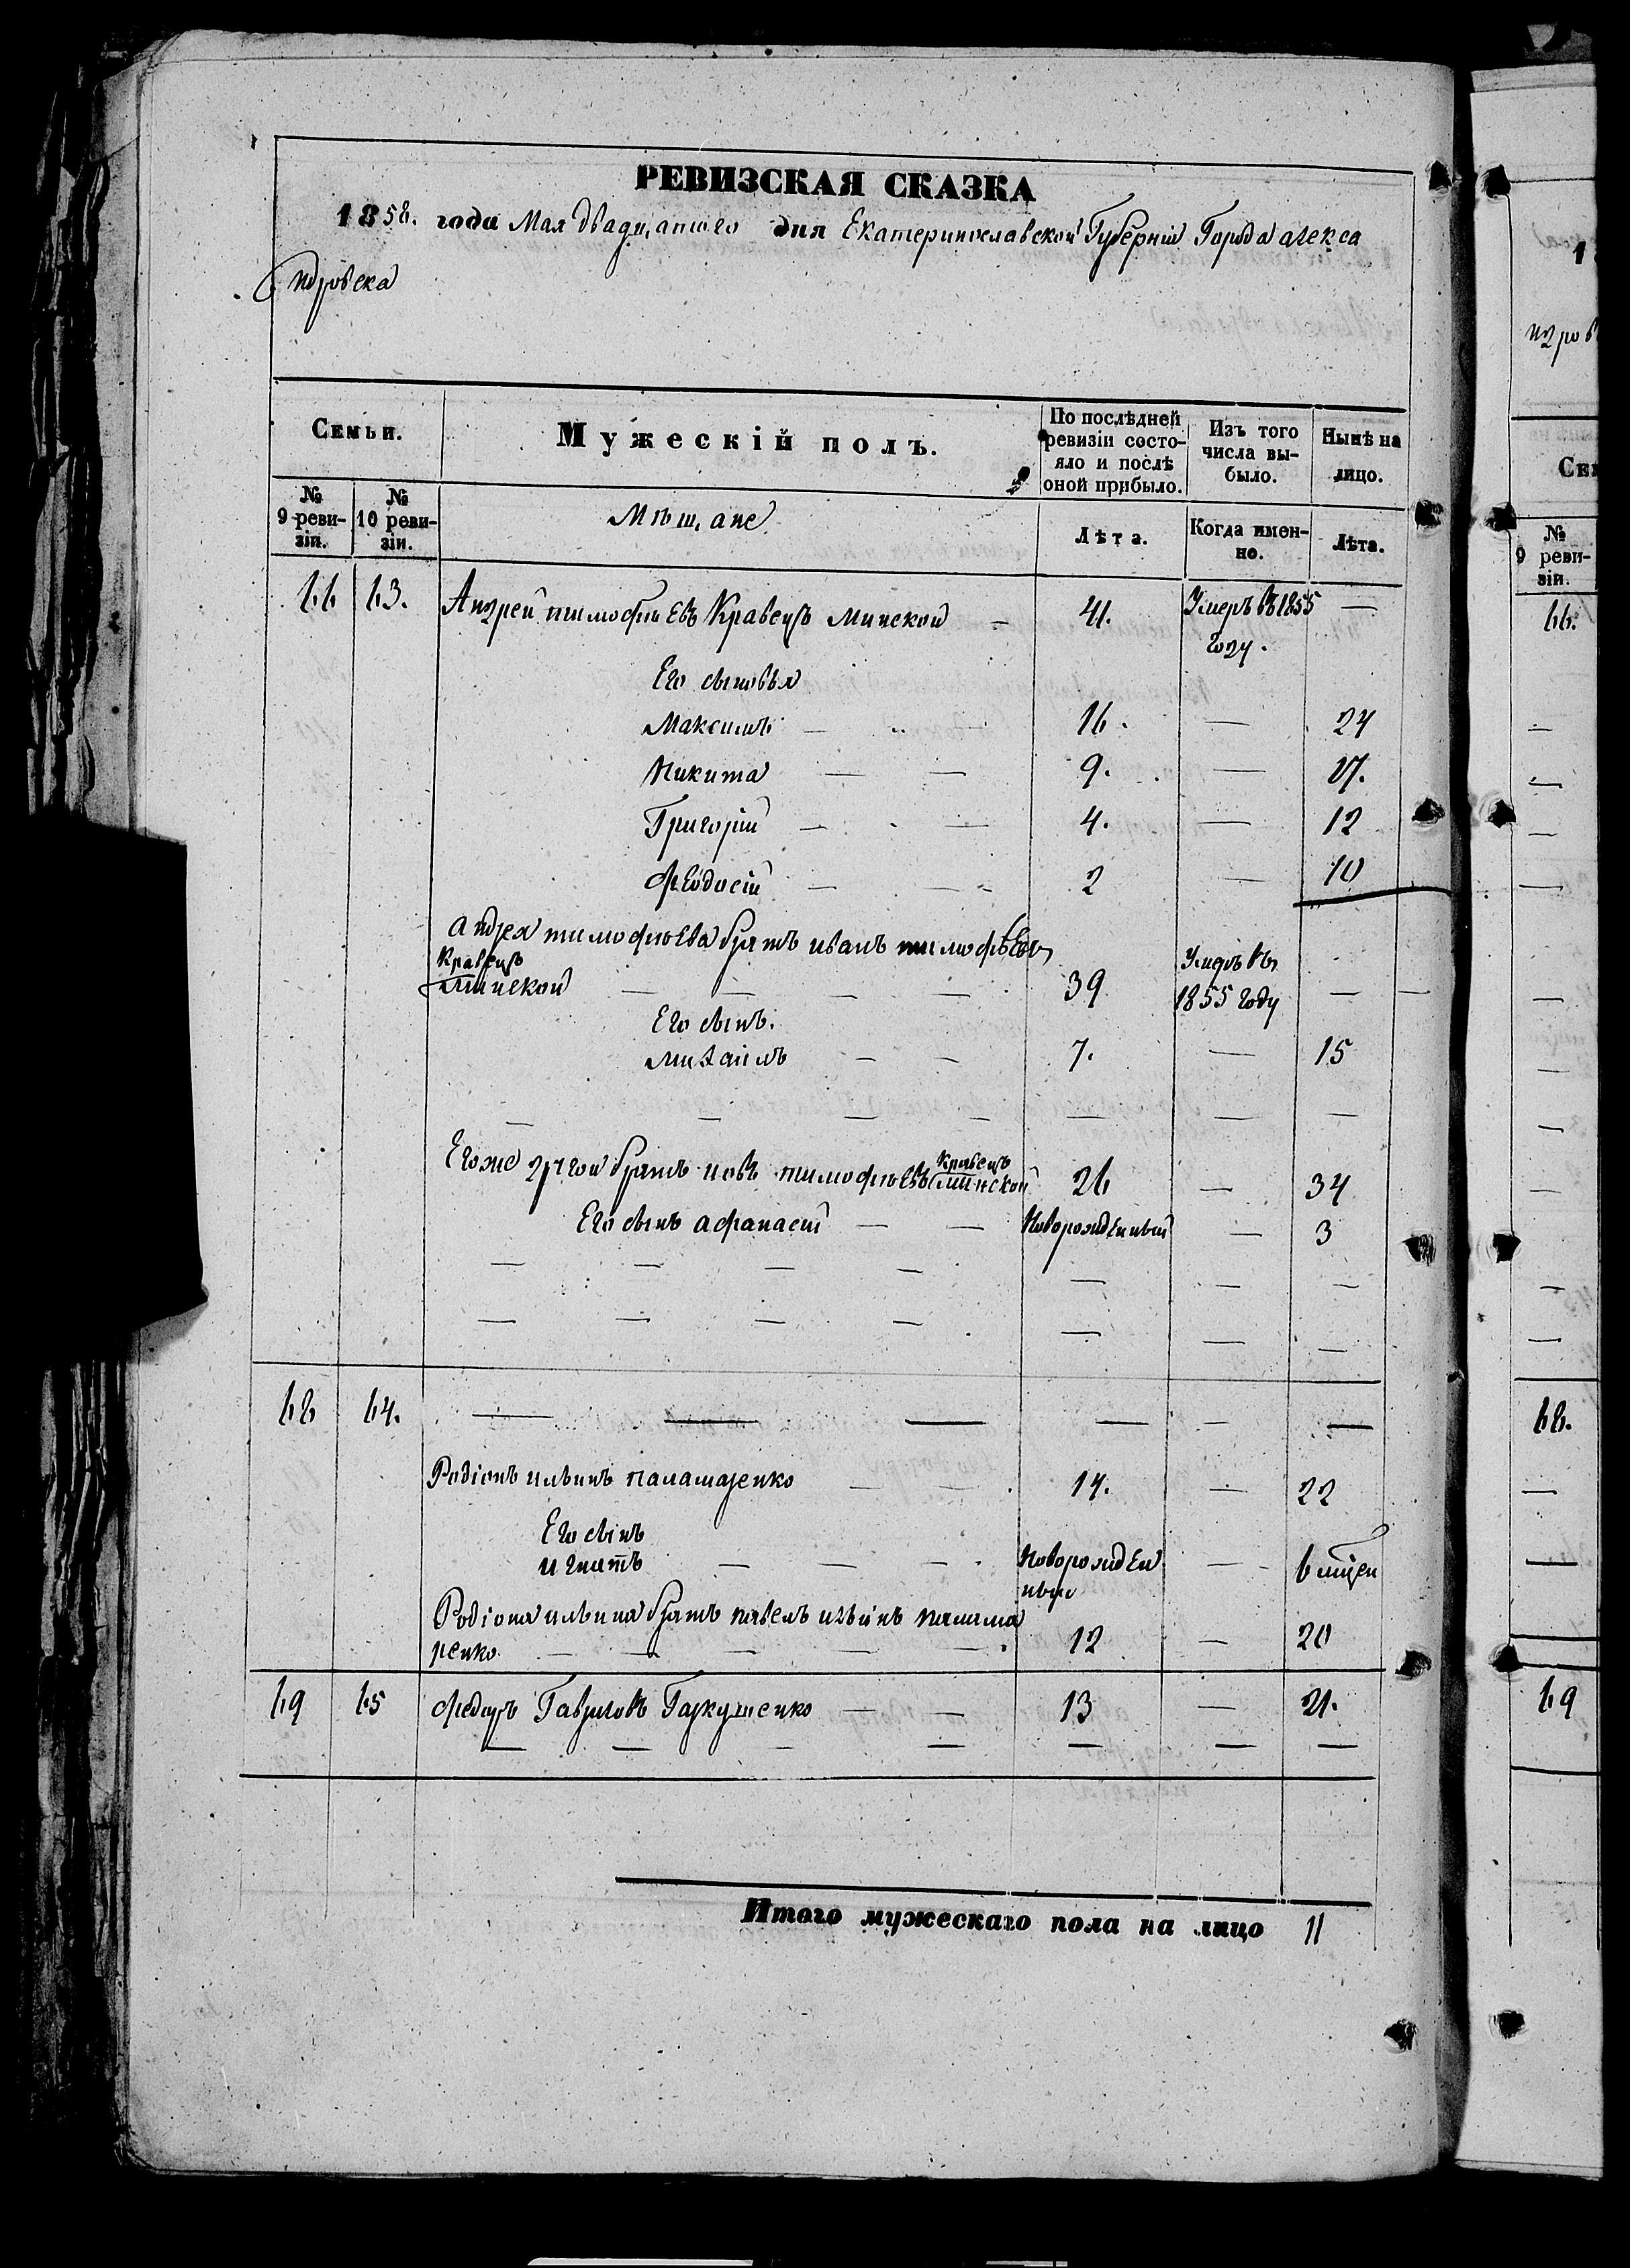 РЕВИЗСКАЯ СКАЗКА
1858. года Мая двадцатого дня Екатеринославской Губерніи Города алекса
ндровска
Семьи.
Мужескій полъ.
По послѣдней ревизіи состо-
яло и послѣ оной прибыло.
Изъ того числа вы-
было.
Нынѣ на лицо.
№ 9 реви-
зіи.
№ 10 реви-
зіи.
Мѣщане
Лѣта.
Когда имен-
но.
Лѣта.
66 63. Андрей тимофѣевъ Кравецъ Минской — 41. Умеръ въ 1855 —
году.
Его сыновья
Максимъ — — 16. — 24
Никита — — 9. — 17.
Григорій — — 4. — 12
Феодосій — — 2 — 10
андрея тимофѣева братъ иванъ тимофѣевъ
Кравецъ
Минской — — — — 39 Умеръ въ 1855 году — —
Его сынъ.
михаилъ — — 7. — 15
— — — — — — —
Его же другой братъ иовъ тимофѣевъ Кравецъ Минской 26 — 34
Его сынъ афанасій — — Новорожденный — 3
— — — — — — —
— — — — — — —
68 64. — — — — — —
Родіонъ ильинъ паламаренко — — 14. — 22
Его сынъ
игнатъ — — — Новорожден
ный — 6 мѣсец
Родіона ильина братъ павелъ ильинъ палама
ренко — — — — 12 — 20
69 65 федоръ Гавриловъ Гаркушенко — — 13 — 21.
— — — — — — —
Итого мужескаго пола на лицо 11
1
ндров
Сем
№
9 реви-
зіи.
66.
68.
69